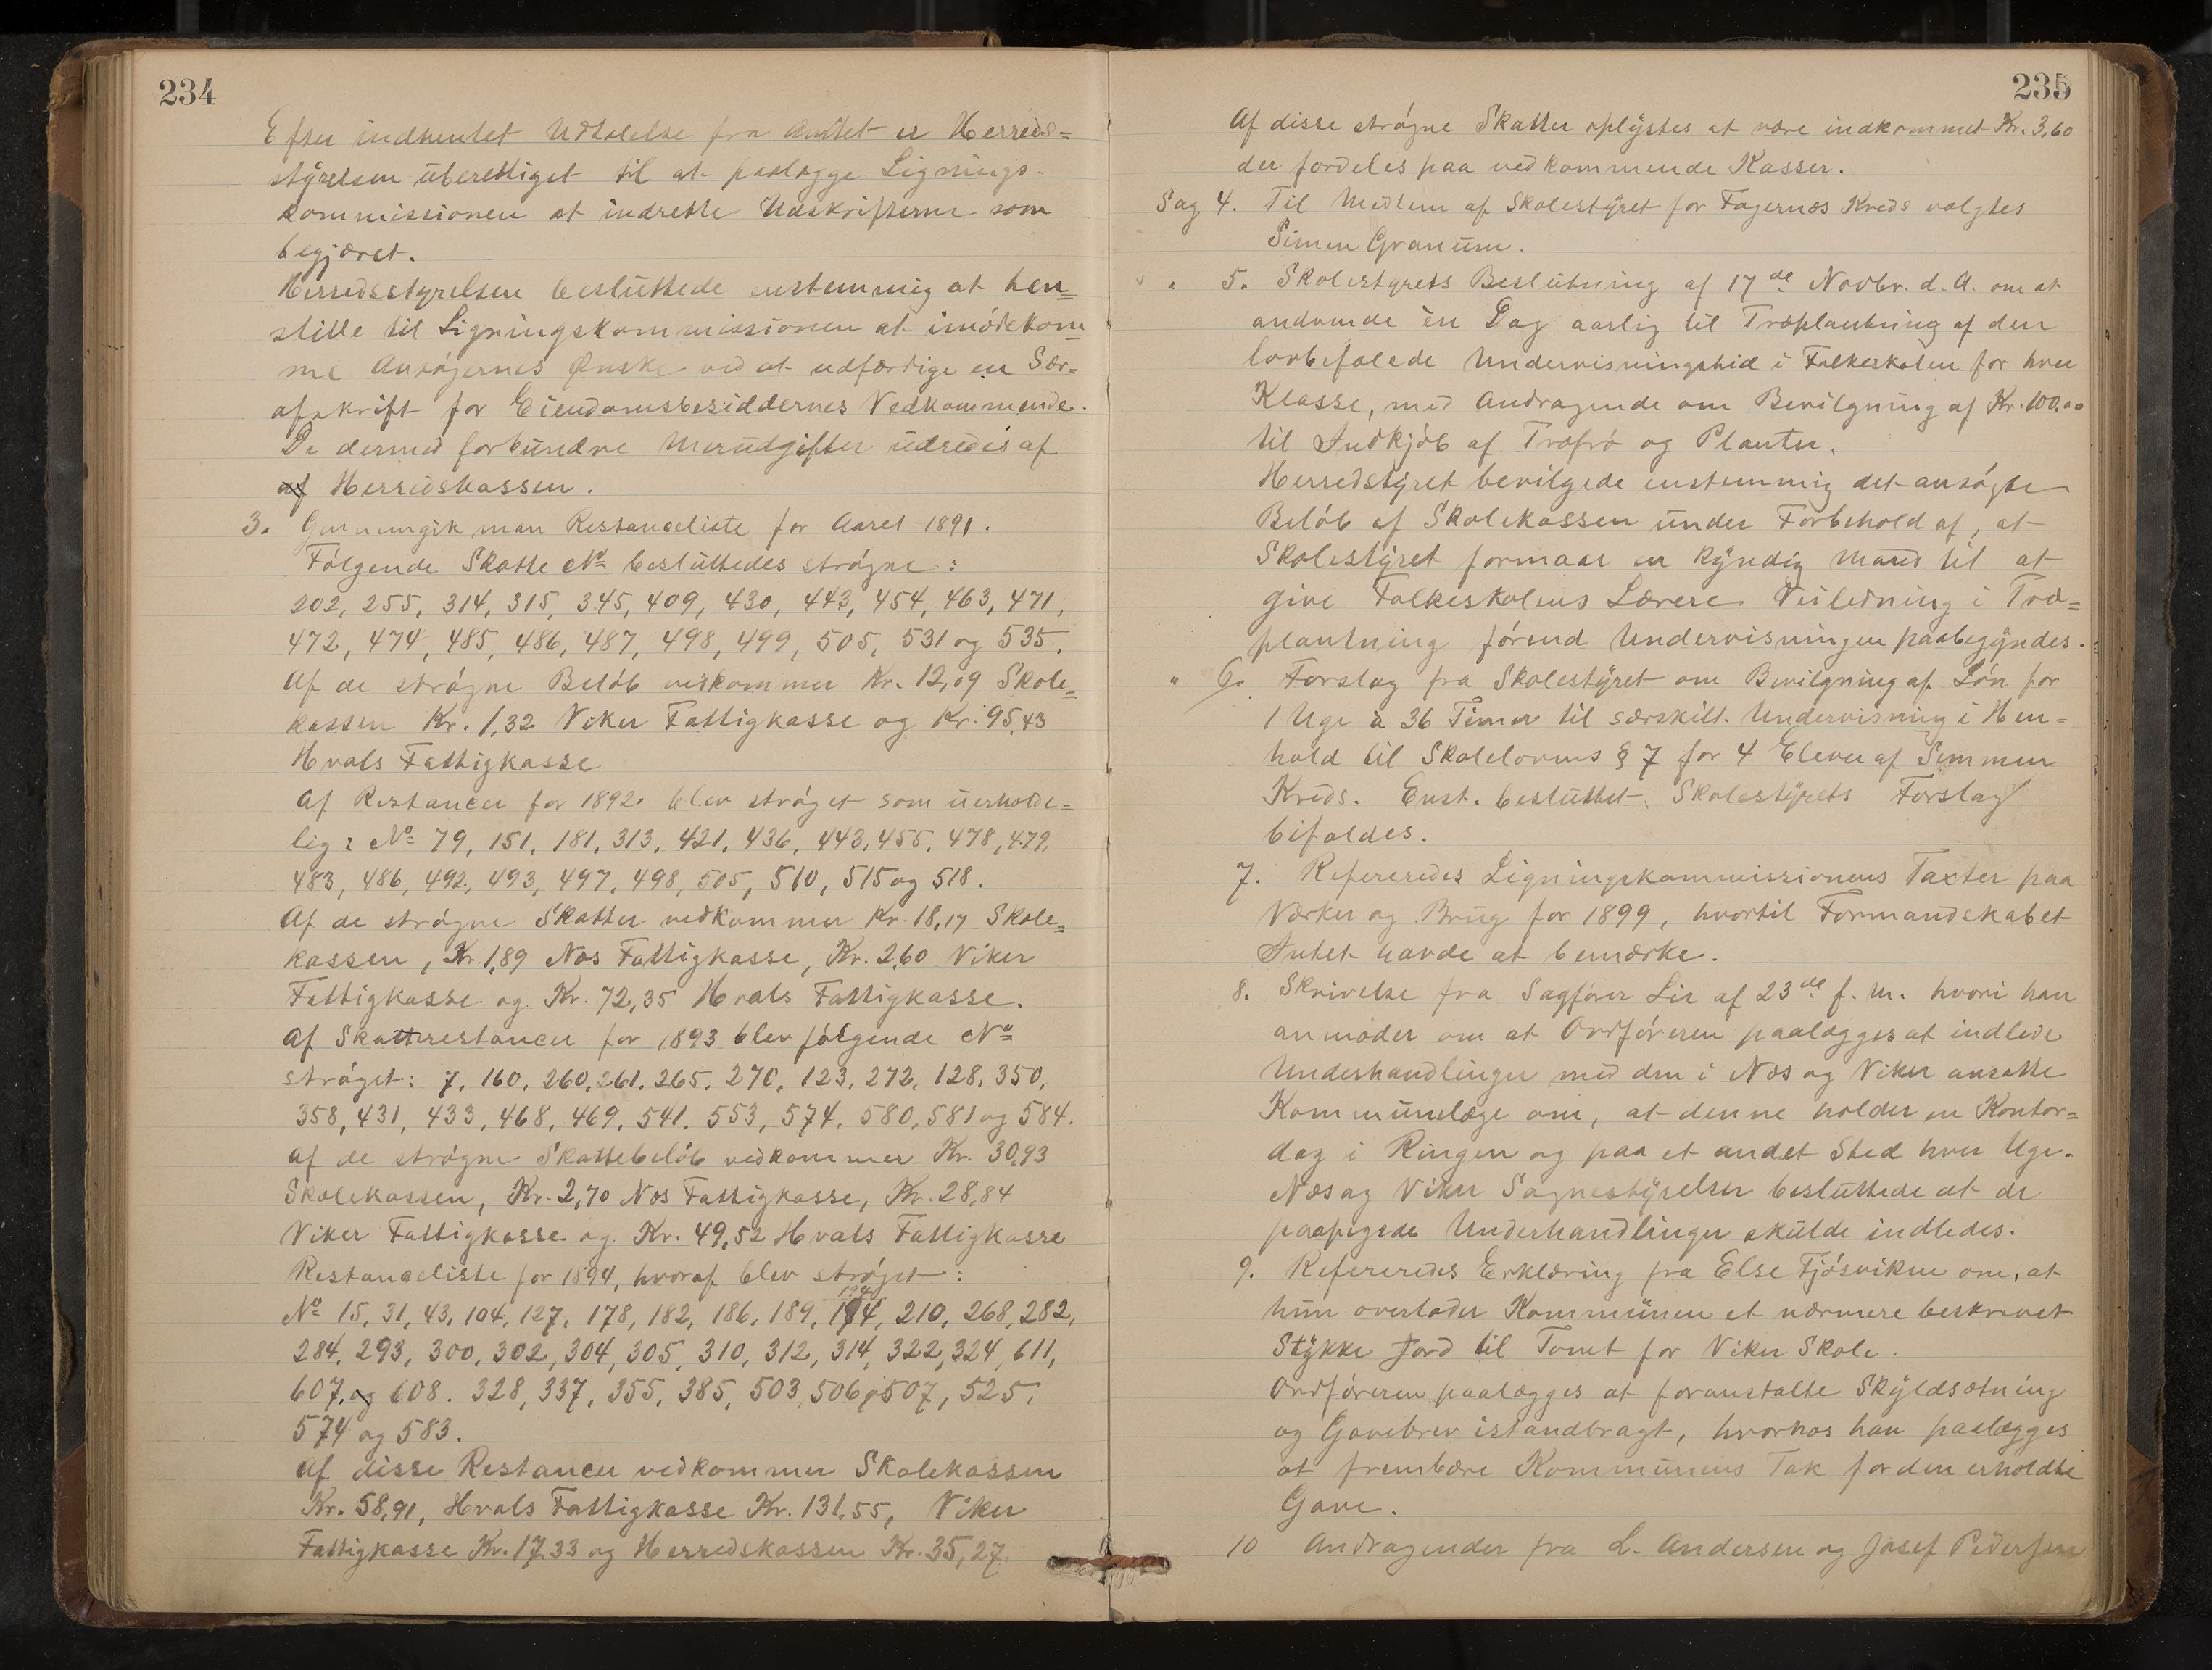 234
Efter indhentet Udtalelse fra Amtet er Herreds=
styrelsen uberettiget til at paalægge Lignings-
kommissionen at indrette Udskrifterne som
begjæret.
Herredsstyrelsen besluttede enstemmig at hen=
stille til Ligningskommissionen at imødekom=
me Ansøgernes Ønske ved at udfærdige en Sær=
afskrift for Eiendomsbesiddernes Vedkommende.
De dermed forbundne Merudgifter udredes af
af Herredskassen.
3. Gjennemgik man Restanceliste for Aaret 1891.
Følgende Skatte No besluttedes strøgne:
202, 255, 314, 315, 345, 409, 430, 443, 454, 463, 471,
472, 474, 485, 486, 487, 498, 499, 505, 531 og 535.
Af de strøgne Beløb vedkommer Kr. 12,09 Skole=
kassen Kr. 1,32 Viker Fattigkasse og Kr. 95,43
Hvals Fattigkasse
Af Restancer for 1892 blev strøget som uerholde=
lig: No 79, 151, 181, 313, 421, 436, 443, 455, 478, 479,
483, 486, 492, 493, 497, 498, 505, 510, 515 og 518.
Af de strøgne Skatter vedkommer Kr. 18,17 Skole=
kassen, Kr. 1,89 Næs Fattigkasse, Kr. 2,60 Viker
Fattigkasse og Kr. 72,35 Hvals Fattigkasse.
Af Skatterestancer for 1893 blev følgende No
strøget: 7, 160, 260, 261, 265, 270, 123, 272, 128, 350,
358, 431, 433, 468, 469, 541, 553, 574, 580, 581 og 584.
Af de strøgne Skattebeløb vedkommer Kr. 30,93
Skolekassen, Kr. 2,70 Næs Fattigkasse, Kr. 28,84
Viker Fattigkasse og Kr. 49,52 Hvals Fattigkasse
Restanceliste for 1894, hvoraf blev strøget:
No 15, 31, 43, 104, 127, 178, 182, 186, 189, 194, 210, 268, 282,
284, 293, 300, 302, 304, 305, 310, 312, 314, 322, 324, 611,
607, og 608. 328, 337, 355, 385, 503, 506, 507, 525,
574 og 583.
Af disse Restancer vedkommer Skolekassen
Kr. 58,91, Hvals Fattigkasse Kr. 131,55, Viker
Fattigkasse Kr. 17,33 og Herredskassen Kr. 35,27.
235
Af disse strøgne Skatter oplystes at være indkommet Kr. 3,60
der fordeles paa vedkommende Kasser.
Sag 4. Til Medlem af Skolestyret for Fagernæs Kreds valgtes
Simen Granum.
" 5. Skolestyrets Beslutning af 17de Novbr. d. A. om at
anvende èn Dag aarlig til Træplantning af den
lovbefalede Undervisningstid i Folkeskolen for hver
Klasse, med Andragende om Bevilgning af Kr. 100.00
til Indkjøb af Træfrø og Planter.
Herredstyret bevilgede enstemmig det ansøgte
Beløb af Skolekassen under Forbehold af, at
Skolestyret formaar en kyndig Mand til at
give Folkeskolens Lærere Veiledning i Træ=
plantning førend Undervisningen paabegyndes.
" 6. Forslag fra Skolestyret om Bevilgning af Løn for
1 Uge à 36 Timer til særskilt Undervisning i Hen=
hold til Skolelovens § 7 for 4 Elever af Semmen
Kreds. Enst. besluttet. Skolestyrets Forslag
bifaldes.
7. Refereredes Ligningskommissionens Taxter paa
Værker og Brug for 1899, hvortil Formandskabet
Intet havde at bemærke.
8. Skrivelse fra Sagfører Lie af 23de f. M. hvori han
anmoder om at Ordføreren paalægges at indlede
Underhandlinger med den i Næs og Viker ansatte
Kommunelæge om, at denne holder en Kontor=
dag i Ringen og paa et andet Sted hver Uge.
Næs og Viker Sognestyrelser besluttede at de
paapegede Underhandlinger skulde indledes.
9. Refereredes Erklæring fra Else Fjøsviken om, at
hun overlader Kommunen et nærmere beskrevet
Stykke Jord til Tomt for Viker Skole.
Ordføreren paalægges at foranstalte Skyldsætning
og Gavebrev istandbragt, hvorhos han paalægges
at frembære Kommunens Tak for den erholdte
Gave.
10 Andragender fra L. Andersen og Josef Pedersen